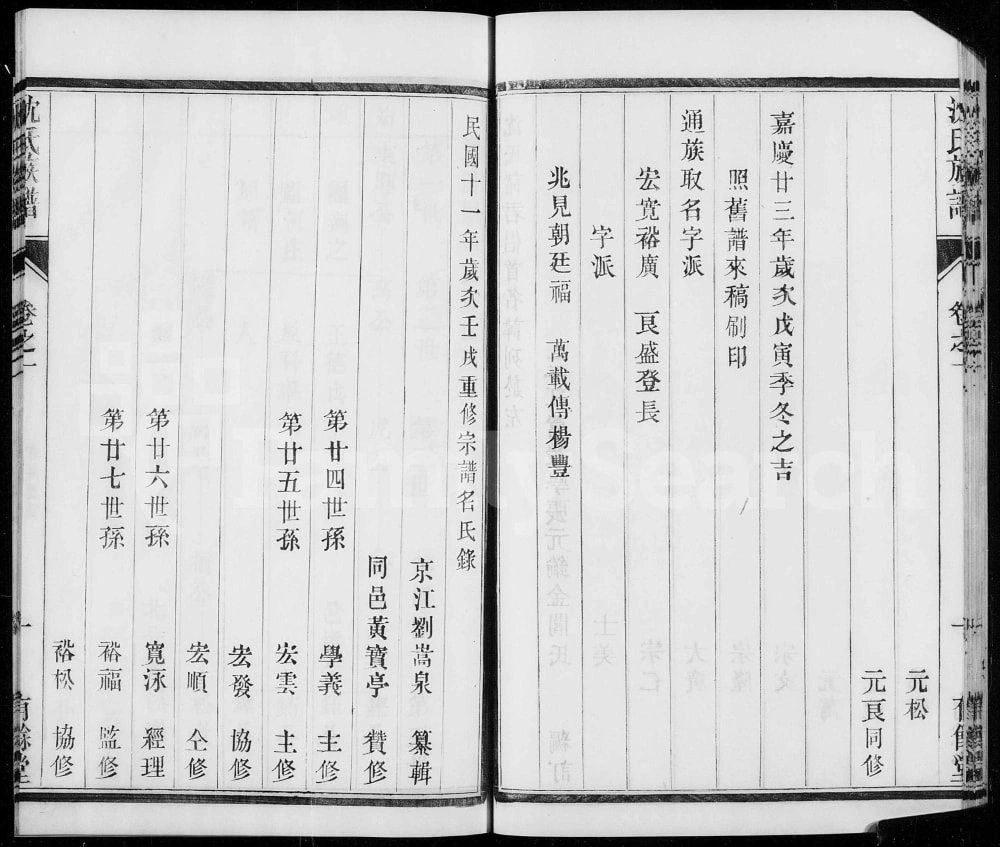 沈氏族譜
卷之一
一
有餘堂
元松
元良同修
嘉慶廿三年歲次戊寅季冬之吉
照舊譜來稿刷印
通族取名字派
宏寬裕廣　良盛登長
字派
兆見朝廷福　萬載傳楊豐
民國十一年歲次壬戌重修宗譜名氏錄
京江劉蒿泉　纂輯
同邑黃寶亭　贊修
第廿四世孫　學義　主修
第廿五世孫　宏雲　主修
宏發　協修
宏順　仝修
第廿六世孫　寬泳　經理
第廿七世孫　裕福　監修
裕松　協修
沈氏族譜
卷之一
一
有餘堂
FamilySearch